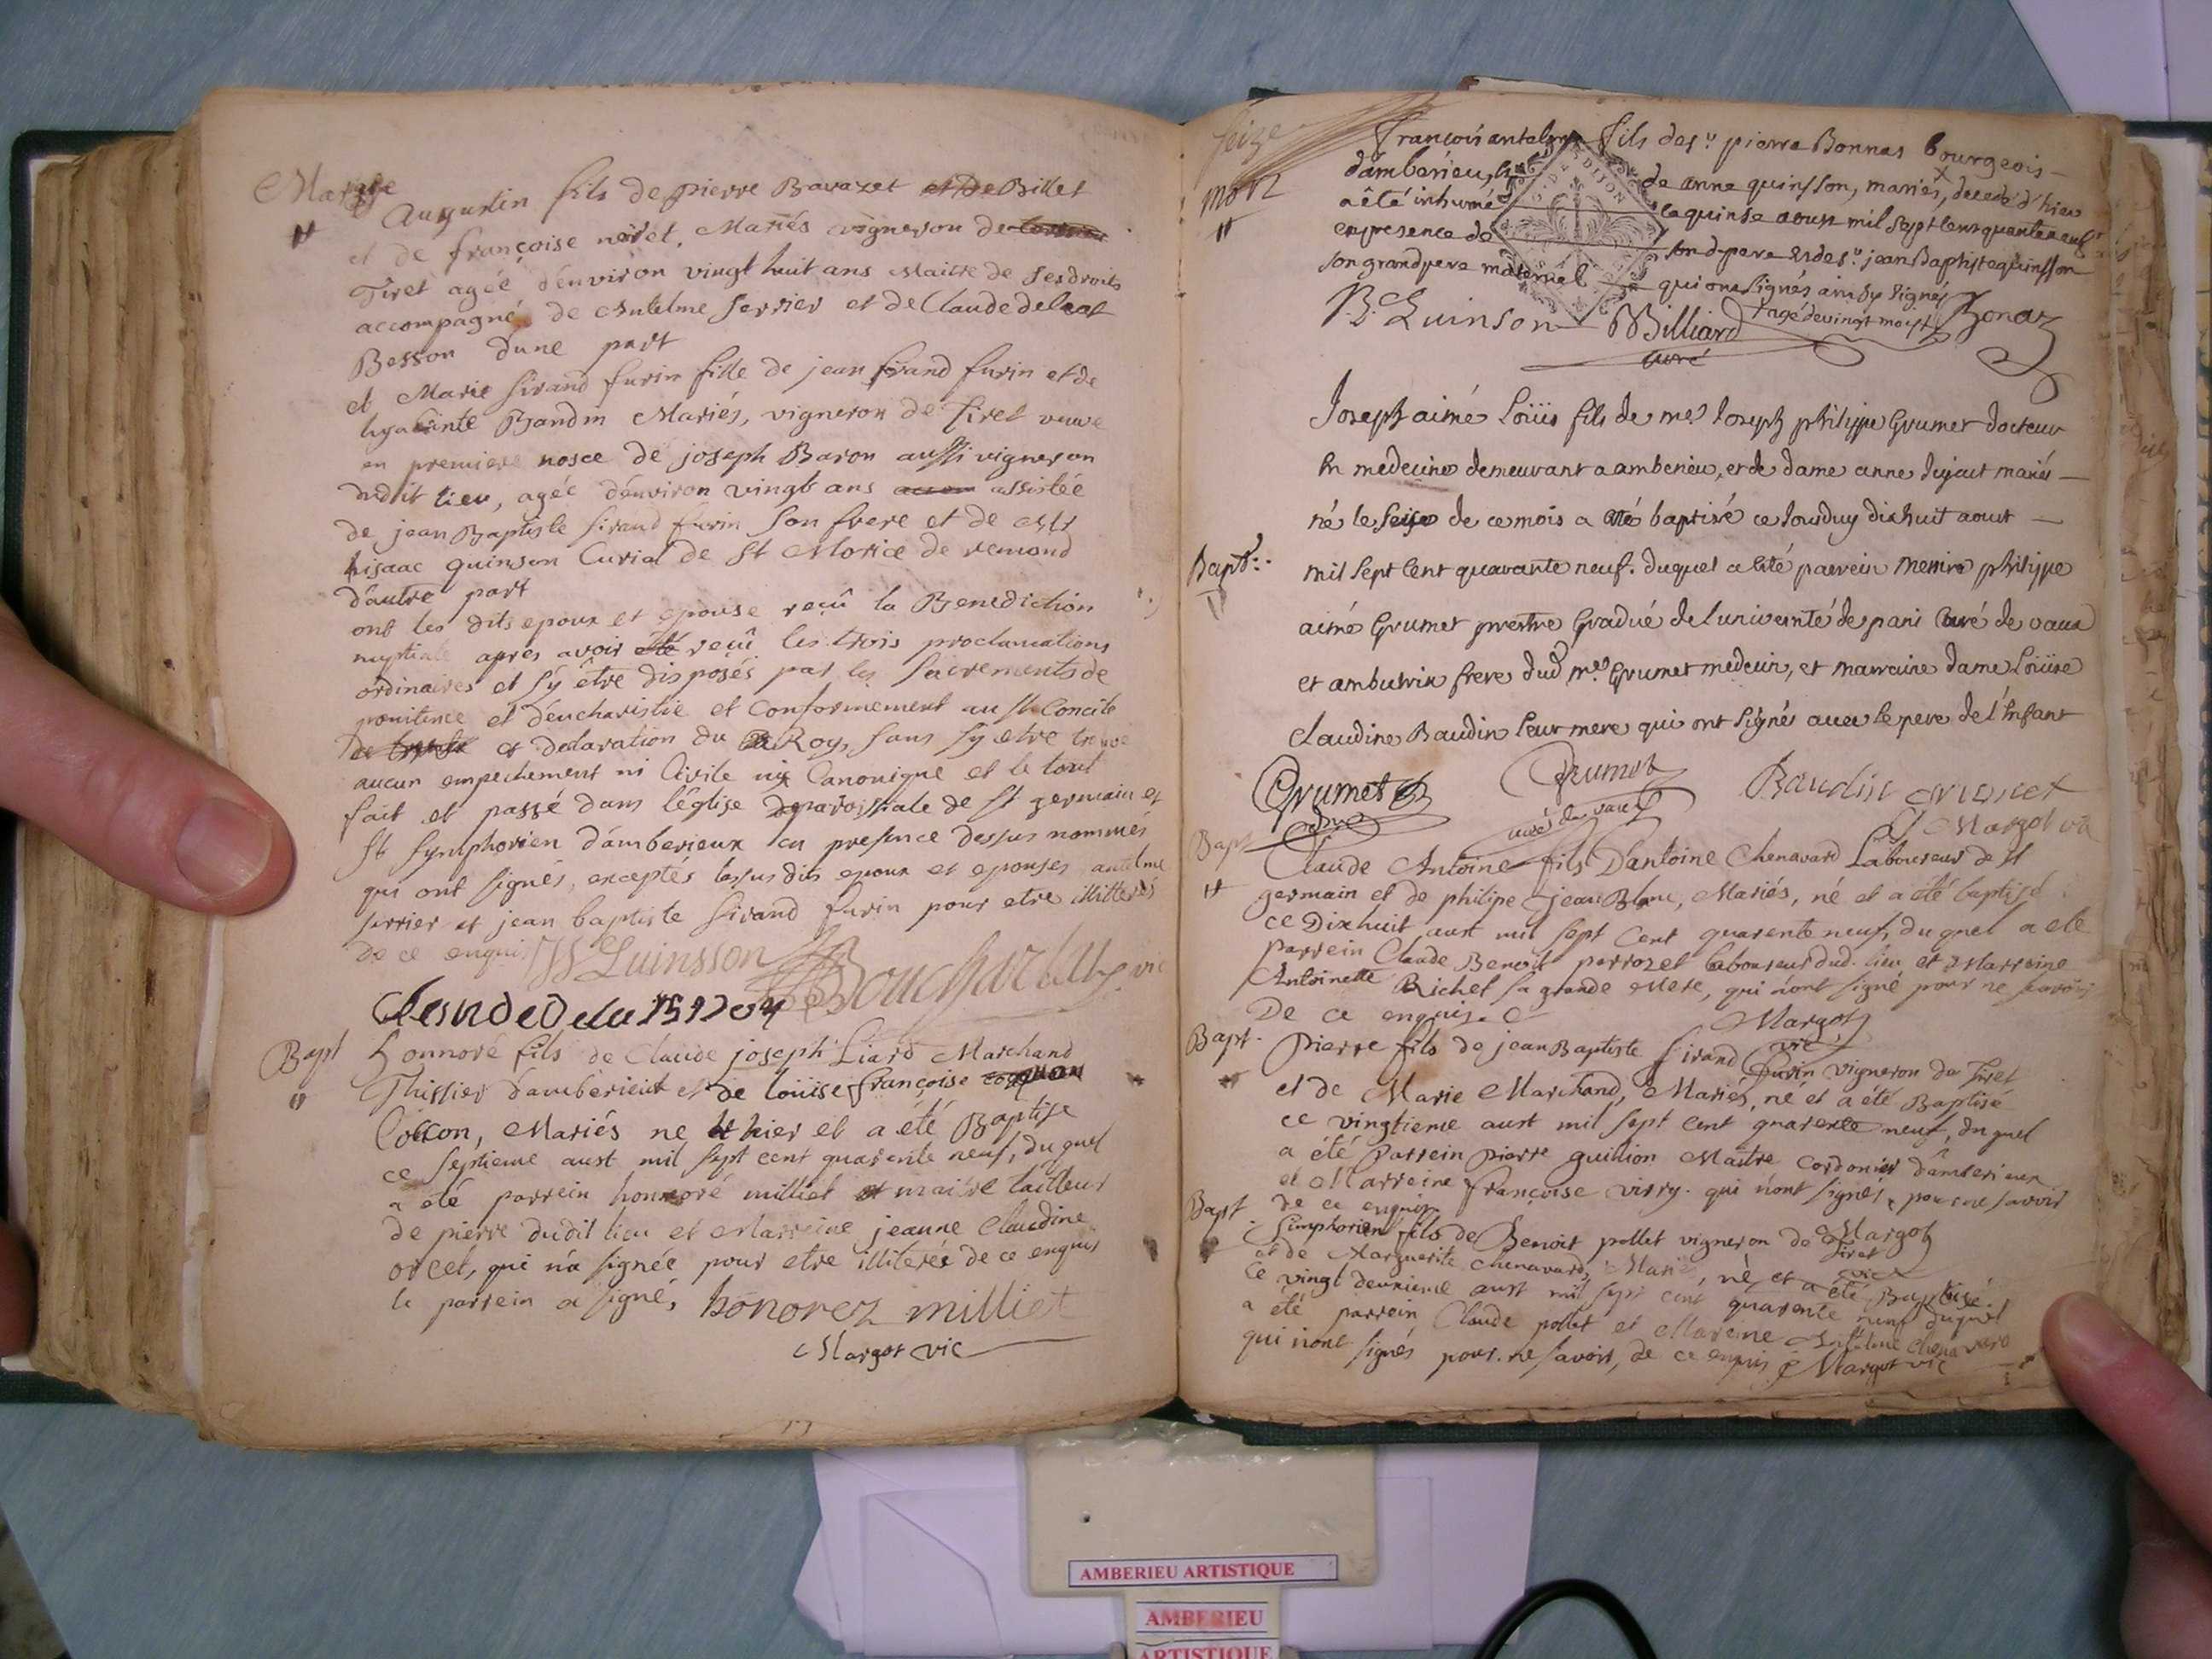 Mariage
Augustin fils de pierre Bavazet et de Billet
et de françoise neiret, Mariés vigneron de
Tiret agée d'environ vingt huit ans Maitre de ses droits
accompagné de Antelme serrier et de Claude
Besson d'une part
et Marie sirand furin fille de jean sirand furin et de
Bandin Mariés, vigneron de Tiret veuve
en premiere nosce de joseph Baron aussi vigneron
dudit lieu, agée d'environ vingt ans assistée
de jean Baptiste sirand furin son frere et de
hisaac quinson Curial de St Morice de remond
d'autre part
ont les dits epoux et epouse reçû la Benediction
nuptiale aprés avoir reçû les trois proclamations
ordinaires et s'y être disposés par les sacrements de
pœnitence et d'eucharistie et Conformement au st Concile
de trente et déclaration du Roy, sans s'y etre trouvé
aucun empechement ni Civile ni Canonique et le tout
fait et passé dans l'église paroissiale de St germain et
St Symphorien d'amberieux en presence dessus nommés
qui ont signés, exceptés lessus dits epoux et epouses, antelme
serrier et jean baptiste sirand furin pour etre illitterés
de ce enquis Quinsson vic
Bapt
honnoré fils de Claude joseph Liard Marchand
Thissier d'amberieux et de loüise françoise
Coccon, Mariés né hier et a été Baptise
ce septieme aust mil sept cent quarente neuf, du quel
a été parrein honnoré milliet maitre tailleur
de pierre dudit lieu et Marreine jeanne Claudine
orcet, qui n'a signée pour etre illiterée de ce enquis
le parrein a signé, honorez milliet
Margot vic
seize
mort
françois antelme fils de sr pierre Bonnas bourgeois
d'amberieu, de anne quinsson, mariés, decedé d'hier
a êté inhumé le quinse aoust mil sept cent quarante neuf
en presence de son d. pere et de sr jean Baptiste quinsson
son grand pere maternel qui ont signés
agé de vingt mois
J.B. Quinson Billiard Bonaz
curé
Joseph aimé Loüis fils de me Joseph philippe Grumet docteur
En medecine demeurant a amberieu, et de dame anne dujact mariés
né le seise de ce mois a êté baptisé ce jourduy dixhuit aoust
Bapt.
mil sept cent quarante neuf. duquel a êté parrein Messire philippe
aimé Grumet prestre Gradué de l'université de paris Curé de vaux
et ambutrix frere dud me Grumet medecin, et marreine dame Loüise
Claudine Baudin leur mere qui ont signés avec le pere de l'Enfant
Grumet Grumet Baudin Grumet
curé de vaux
Margot vic
Bapt
Claude Antoine fils D'antoine Chenavard Laboureur de st
germain et de philipe jean Blanc, Mariés, né et a été baptisé
ce Dixhuit aust mil sept Cent quarente neuf, du quel a été
Parrein Claude Benoit perrozet laboureur dud. lieu et Marreine
Antoinette Richet sa grande Mere, qui n'ont signé pour ne savoir
De ce enquis
Margot
vic
Bapt.
Pierre fils de jean Baptiste sirand furin vigneron du Tiret
et de Marie Marchand, Mariés, né et a été Baptisé
ce vingtieme aust mil sept cent quarente neuf, du quel
a été Parrein pierre guillion Maitre Cordonier d'amberieux
et Marreine françoise virry. qui n'ont signés, pour ne savoir
de ce enquis
Margot
vic
Bapt
Simphorien fils de Benoit pollet vigneron de Tiret
et de Marguerite Chenavard, Mariés, né et a été Baptisé
ce vingt deuxieme aust mil sept cent quarente neuf duquel
a été parrein Claude pollet et Mareine Antelme Chenavard
qui n'ont signés pour ne savoir, de ce enquis Margot vic
AMBERIEU ARTISTIQUE
AMBERIEU
ARTISTIQUE